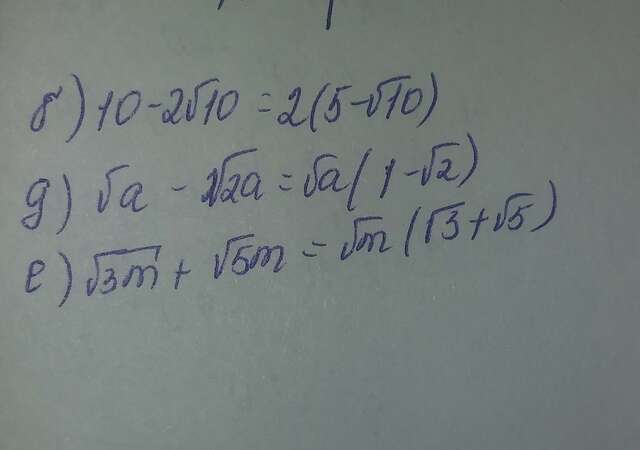 б) 10-2√10 = 2(5-√10)
д) √a - √2a = √a(1-√2)
е) √3m + √5m = √m(√3+√5)